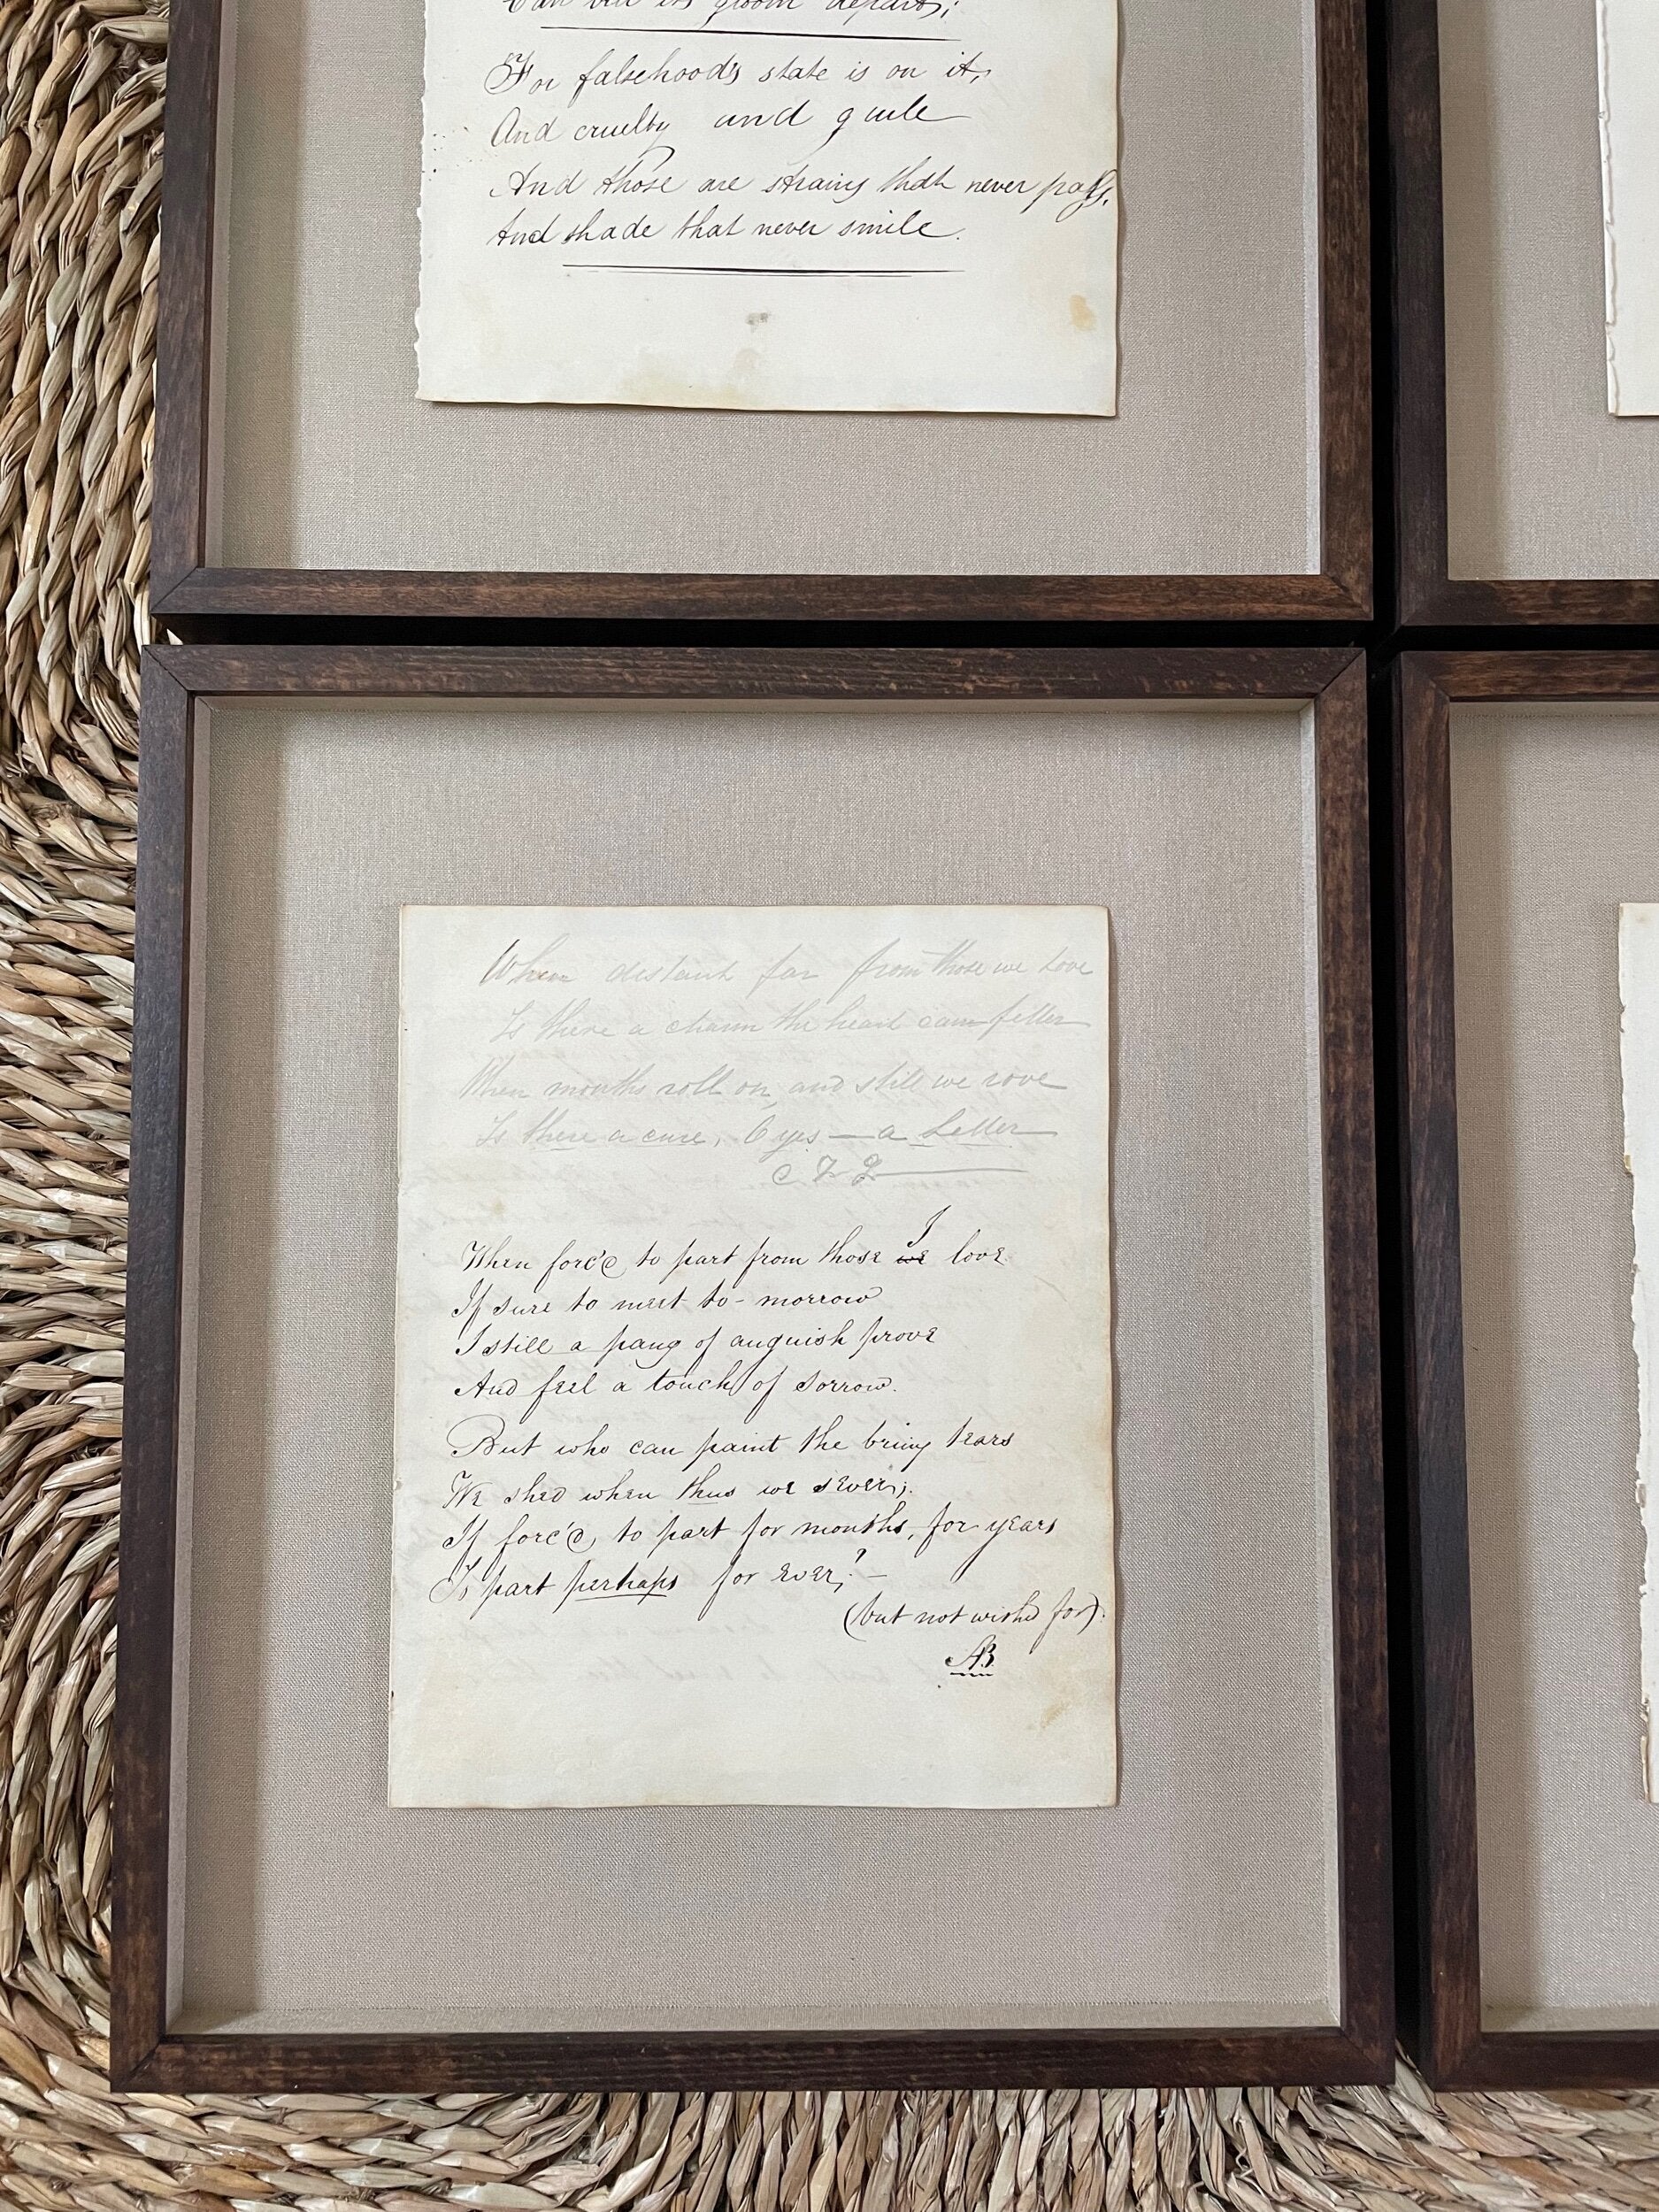 For falsehood's state is on it,
And cruelty and guile
And those are strains that never pass,
And shade that never smile.
When distant far from those we love
Is there a charm the heart can fetter
When months roll on, and still we rove
Is there a cure, O yes — a Letter
When forc'd to part from those we I love
If sure to meet to-morrow
I still a pang of anguish prove
And feel a touch of sorrow.
But who can paint the briny tears
We shed when thus we sever;
If forc'd, to part for months, for years
To part perhaps for ever,? —
(but not wished for).
AB